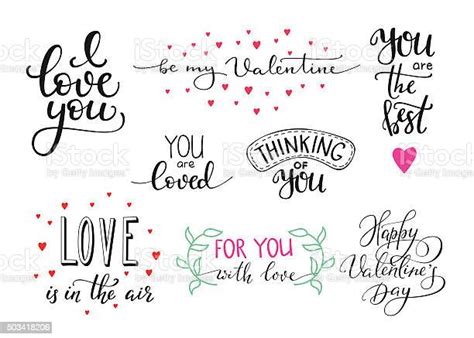 I
love
you
be my Valentine
You
are
the
best
YOU
are
loved
THINKING
OF
YOU
LOVE
is in the air
FOR YOU
with love
Happy
Valentine's
Day
iStock
503418206